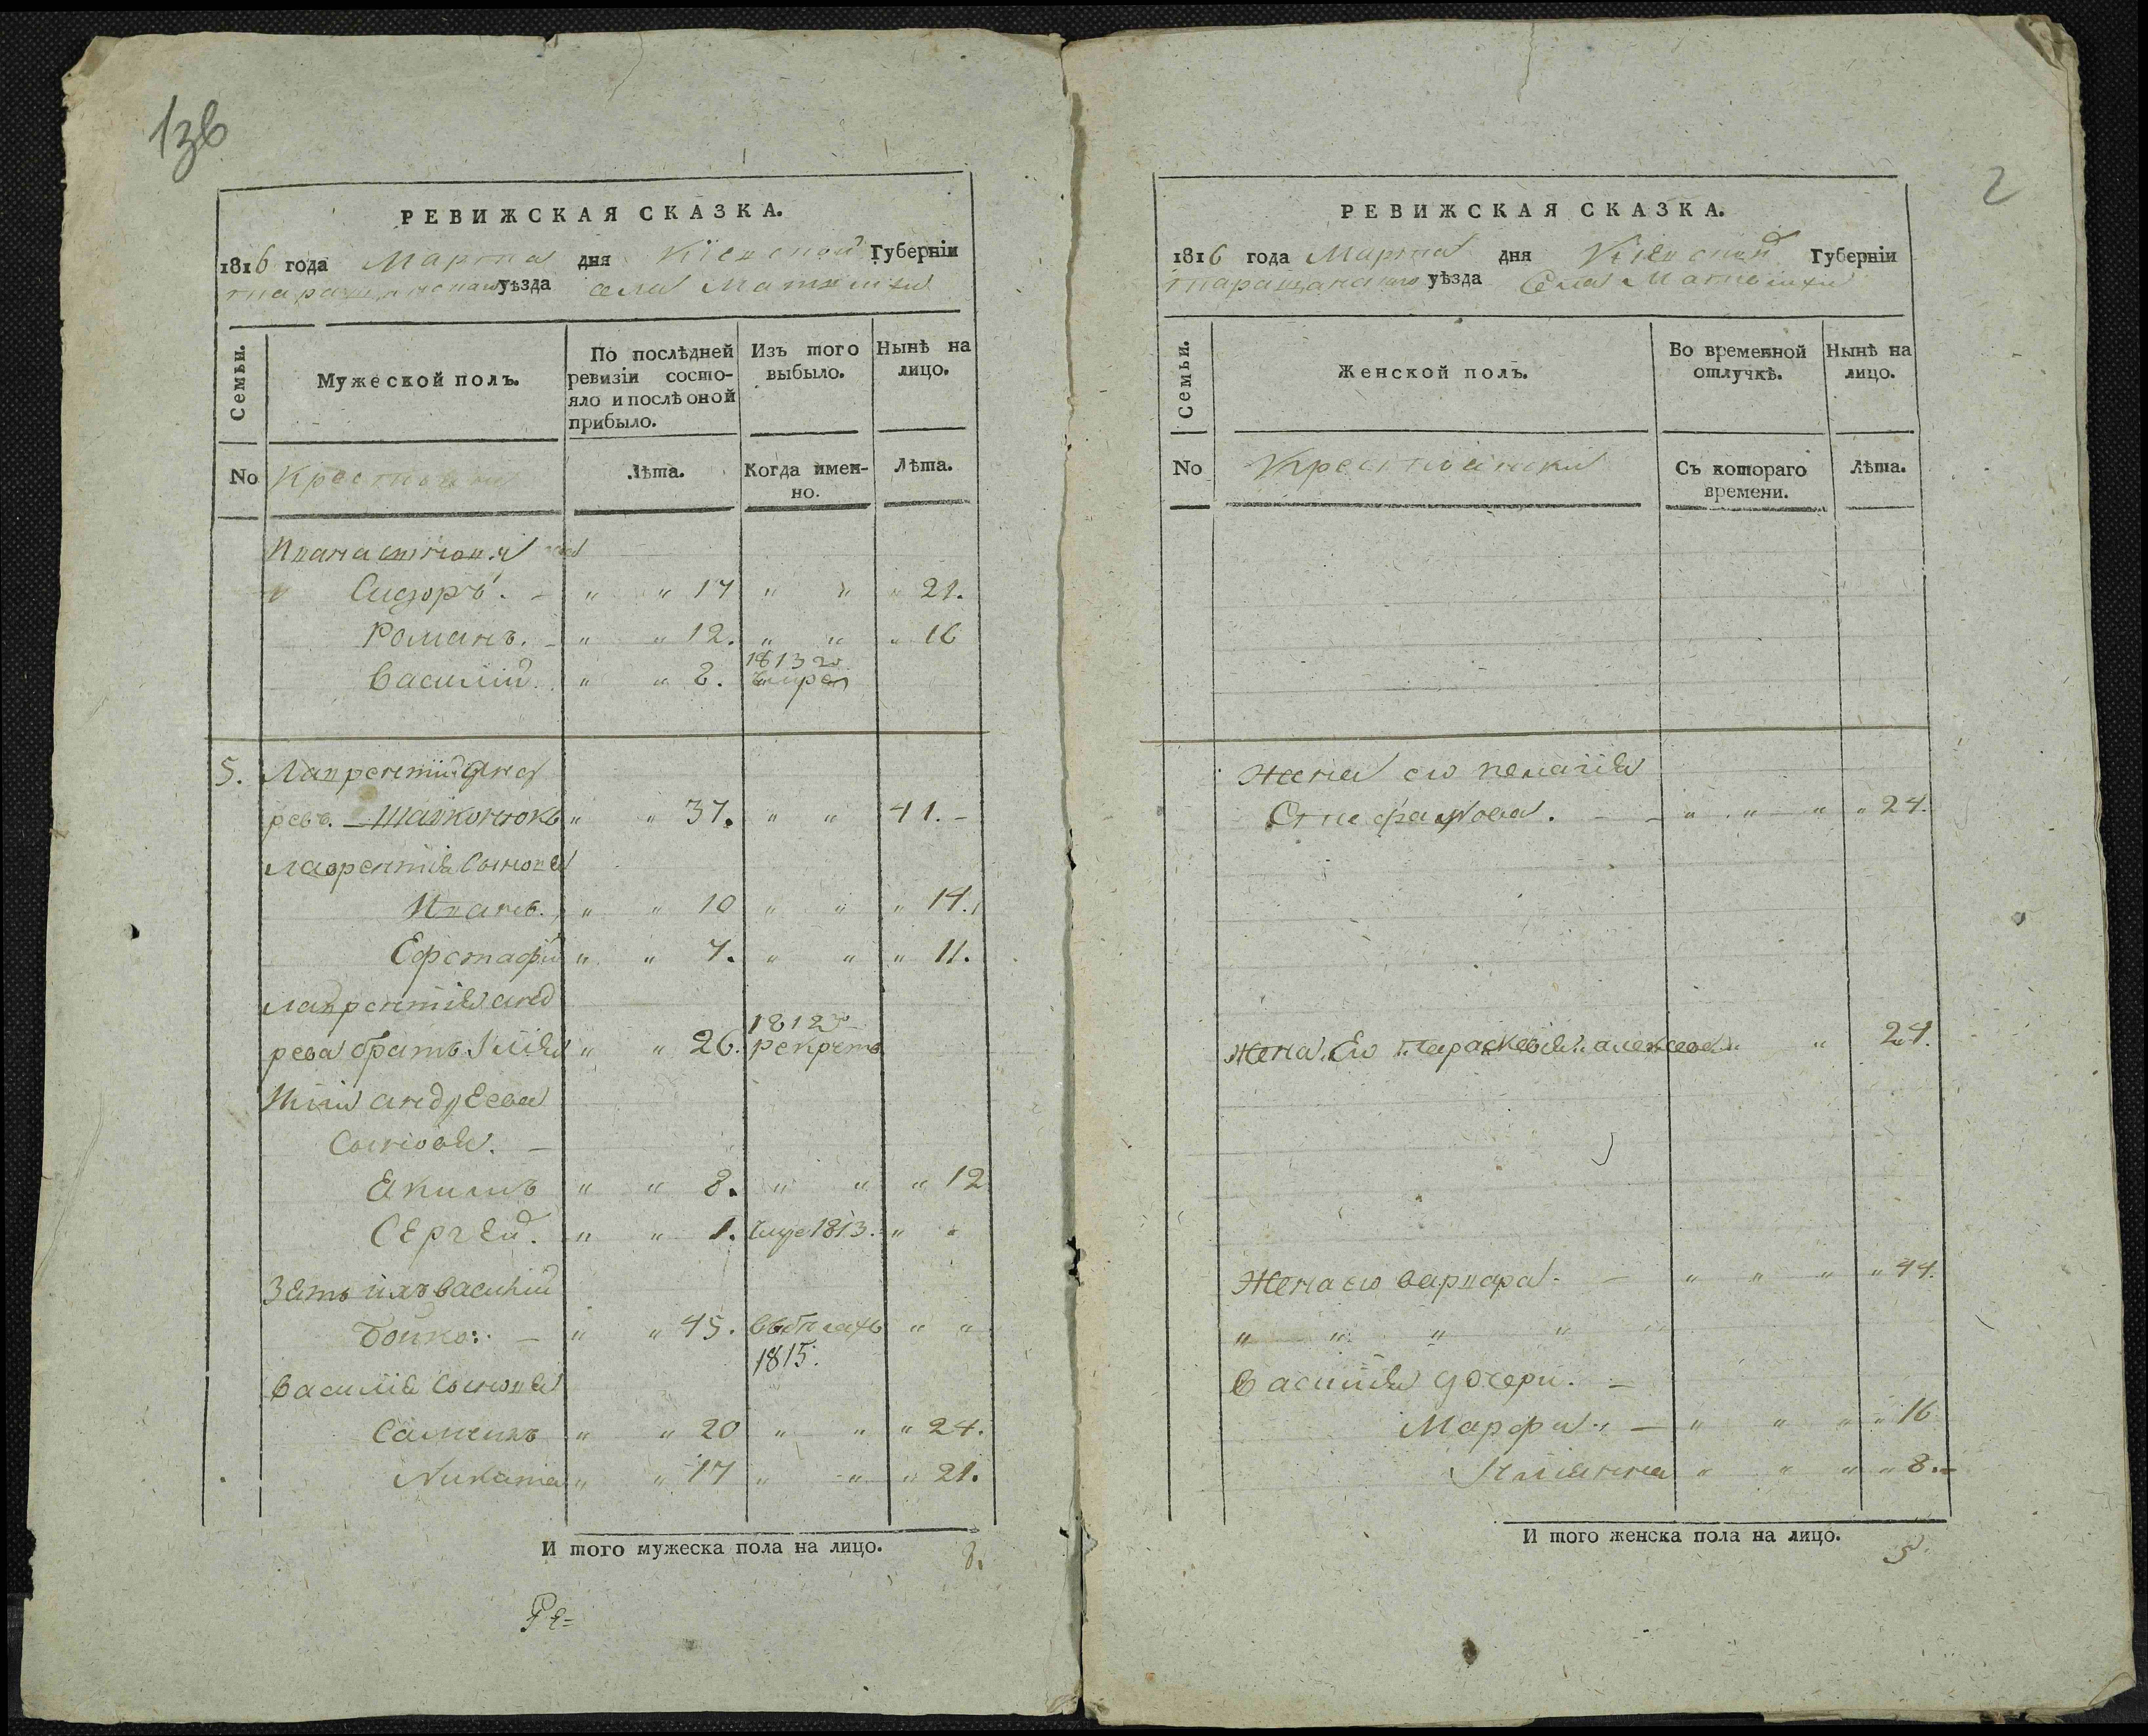 1зв
РЕВИЖСКАЯ СКАЗКА.
1816 года Марта дня Кіевской Губерніи
таращанскаго уѣзда села Матвѣихи
Семьи.
Мужеской полъ.
По послѣдней ревизіи состо-
яло и послѣ оной прибыло.
Изъ того выбыло.
Нынѣ на лицо.
No
Крестьяни
Лѣта.
Когда имен-
но.
Лѣта.
Ивана
Сидоръ. — " " 17 " " " 21.
Романъ. — " " 12. " " " 16
Василій. " " 8. 1813 го
умре
5. Лаврентій Анд
ревъ. — " " 37. " " 41. —
Лаврентія Сынова
Иванъ. " " 10 " " " 14.
Ефстафій " " 7. " " " 11.
Лаврентія анд
рева братъ Илія " " 26. 1812го рекрутъ
Иліи андреева
Сынова. —
Якимъ " " 8. " " " 12
Сергей. " " 1. 1813. " "
Зять ихъ Василий
Бойко: — " " 45. 1815. " "
Василія Сынова
" " 20 " " " 24.
Никита " " 17 " " " 21.
И того мужеска пола на лицо. 8.
Ре=
2
РЕВИЖСКАЯ СКАЗКА.
1816 года Марта дня Кіевской Губерніи
таращанскаго уѣзда Села Матвѣихи
Семьи.
Женской полъ.
Во временной отлучкѣ.
Нынѣ на лицо.
No
Крестьянски
Съ котораго времени.
Лѣта.
жена его Пелагія
— — " " " " 24.
жена Ею Параскевія " " 24.
Жена его варвара. — " " " " 44.
" " " " "
Василія дочери. —
Марфа. — " " " " 16
Ильянна " " " " 8. —
И того женска пола на лицо. 5.